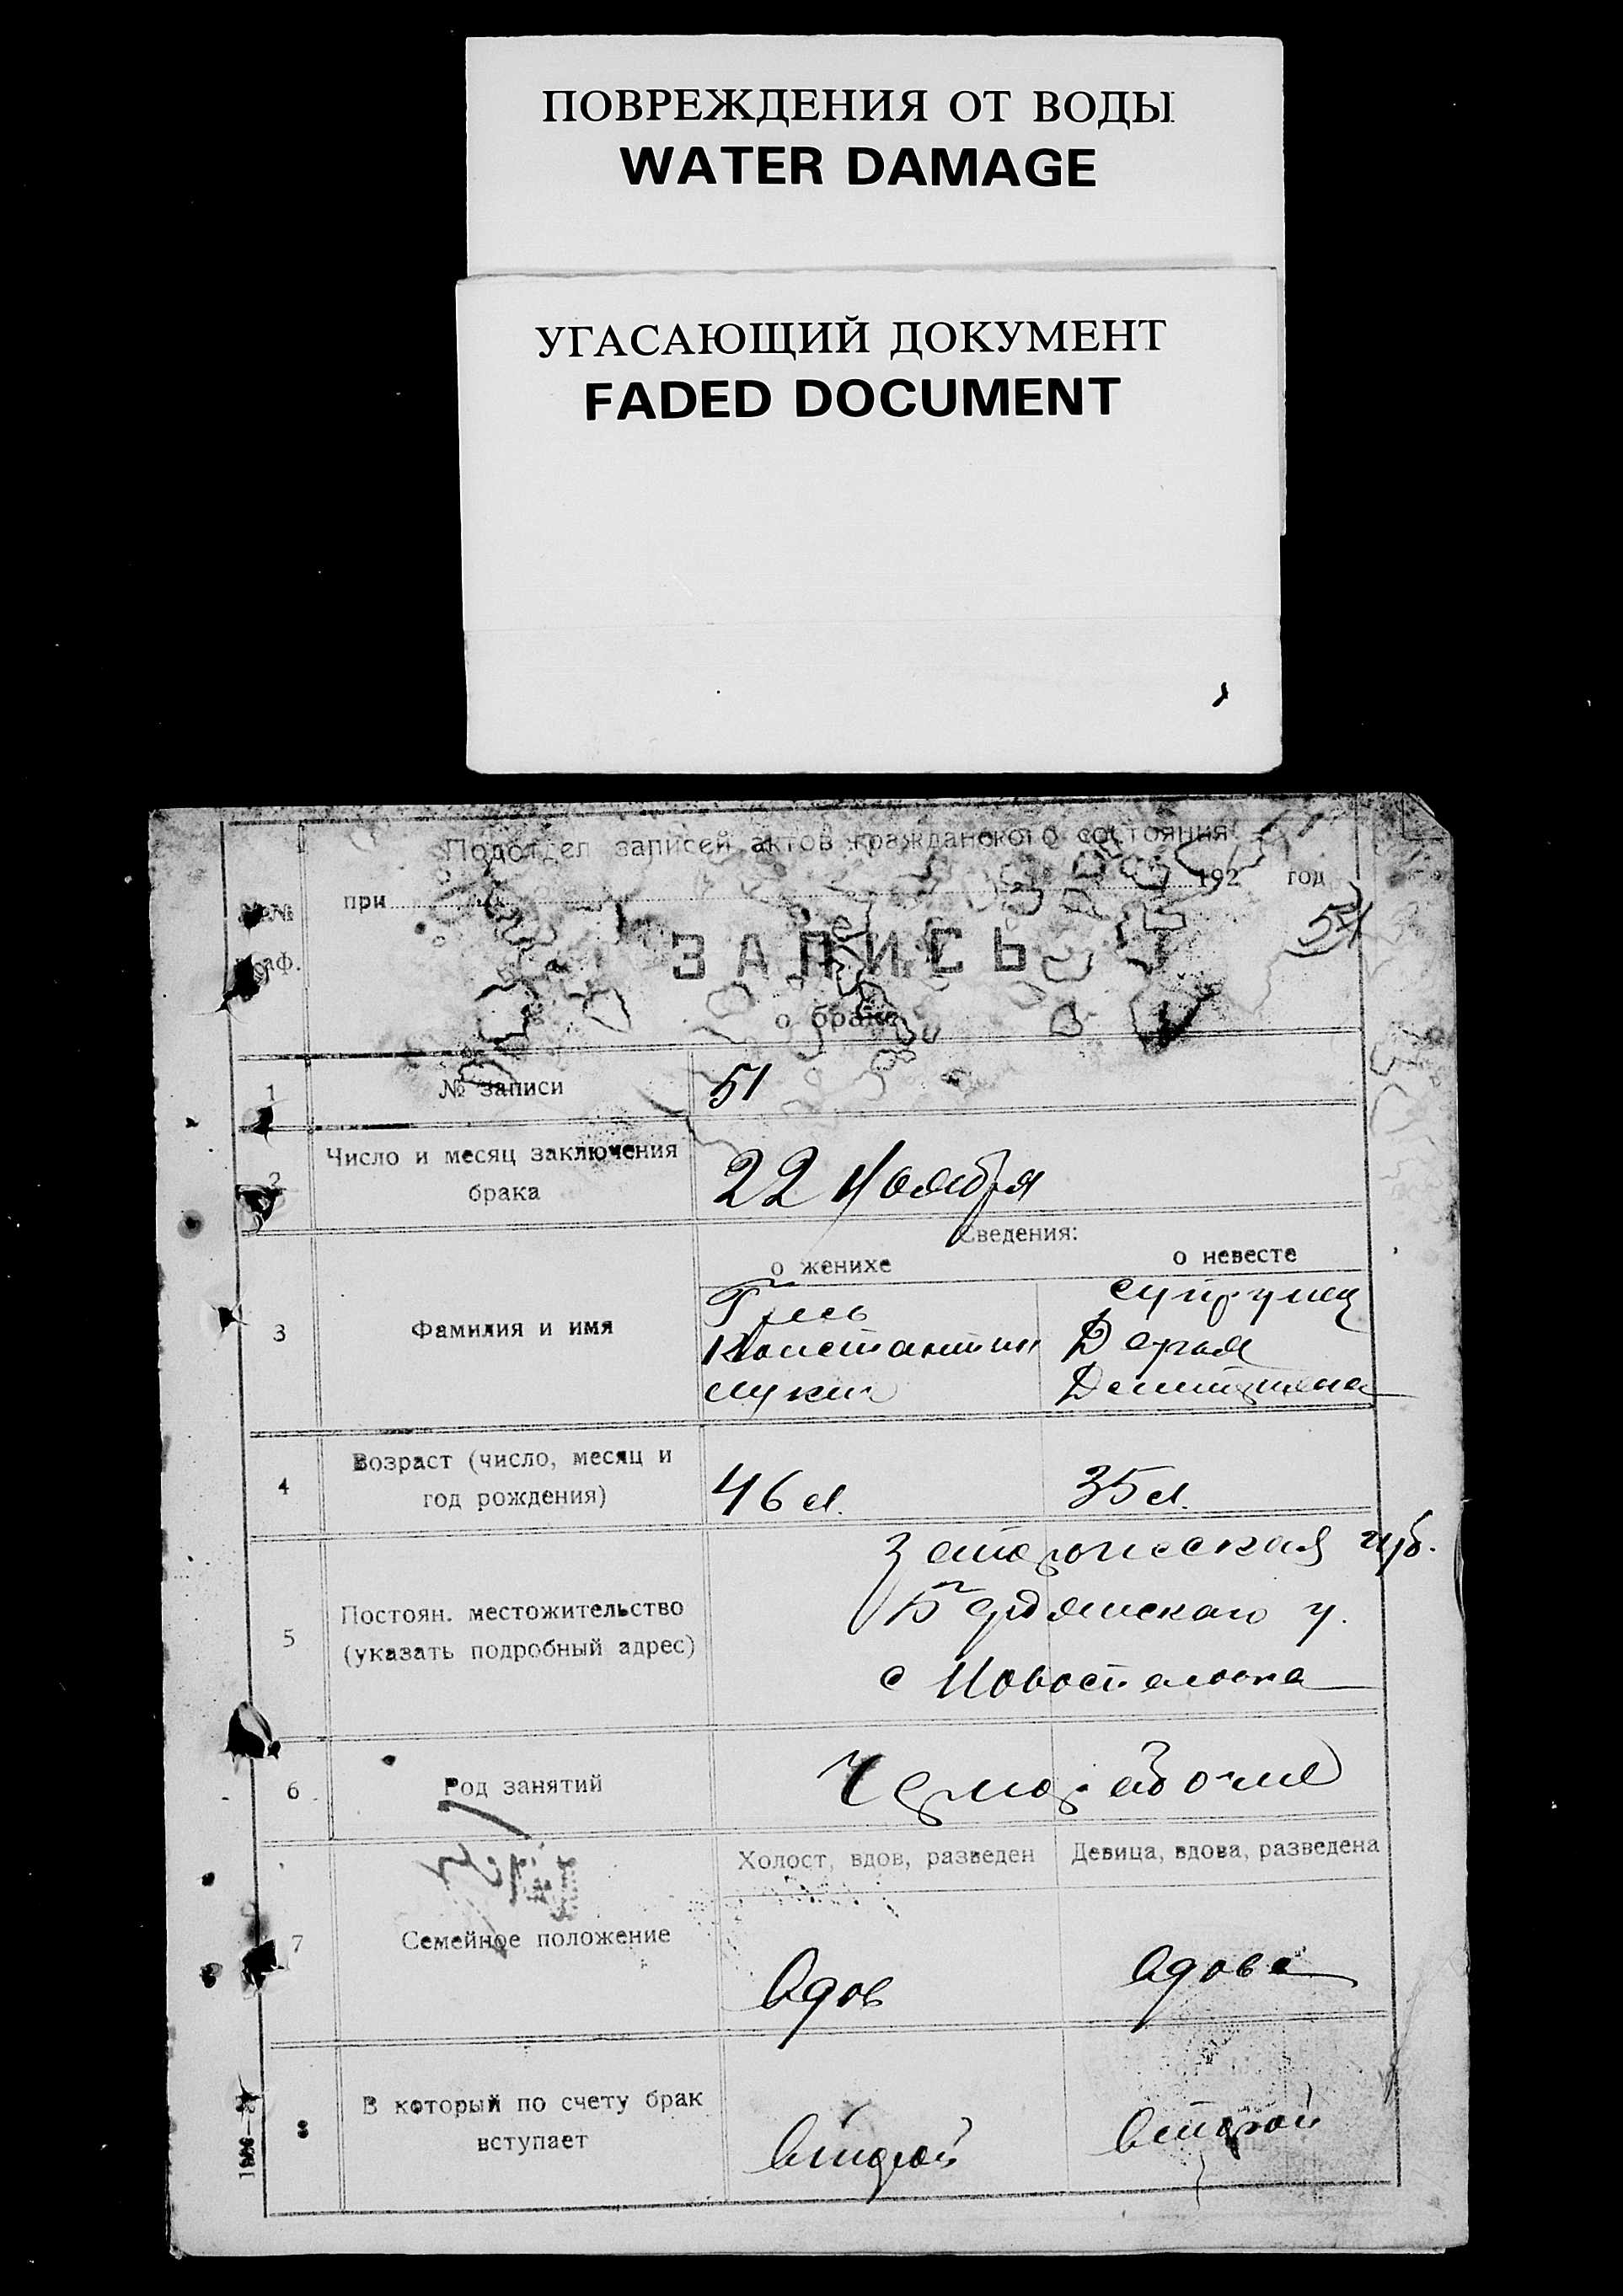 ПОВРЕЖДЕНИЯ ОТ ВОДЫ
WATER DAMAGE
УГАСАЮЩИЙ ДОКУМЕНТ
FADED DOCUMENT
Подотдел записей актов гражданского состояния
при 192 год
№№
54
ЗАПИСЬ
о браке
1 № записи 51
2 Число и месяц заключения брака 22 Ноября
Сведения:
о женихе о невесте
3 Фамилия и имя
Константин Дарья
4 Возраст (число, месяц и год рождения) 46 л. 35 л.
5 Постоян. местожительство (указать подробный адрес)
Запорожская губ.
Бердянского у.
с Новоспасовка
6 Род занятий Чернорабочие
Холост, вдов, разведен Девица, вдова, разведена
7 Семейное положение Вдов Вдова
8 В который по счету брак вступает второй второй